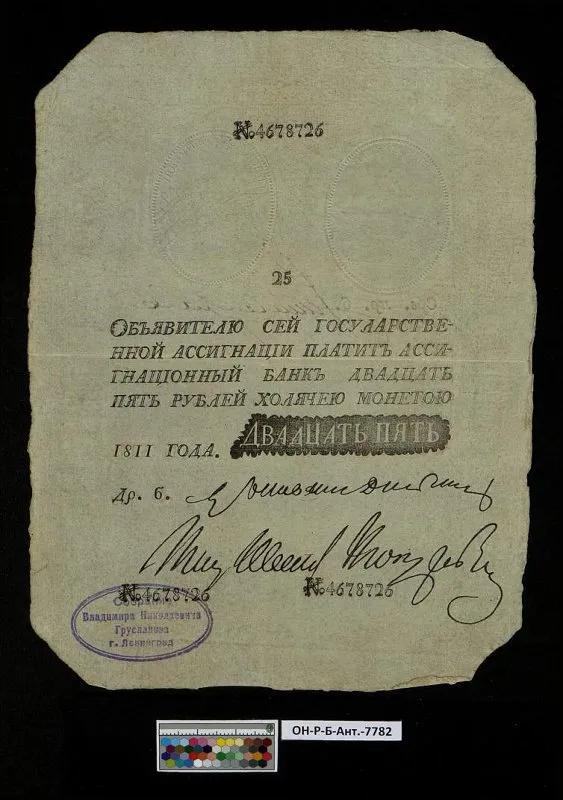 №4678726
25
ОБЪЯВИТЕЛЮ СЕЙ ГОСУЛАРСТВЕ-
ННОЙ АССИГНАЦІИ ПЛАТИТЪ АССИ-
ГНАЦІОННЫЙ БАНКЪ ДВАДЦАТЬ
ПЯТЬ РУБЛЕЙ ХОЛЯЧЕЮ МОНЕТОЮ
1811 ГОДА. ДВАДЦАТЬ ПЯТЬ
Др. б.
№4678726 №4678726
Собрание
Владимира Николаевича
г. Ленинград
ОН-Р-Б-Ант.-7782